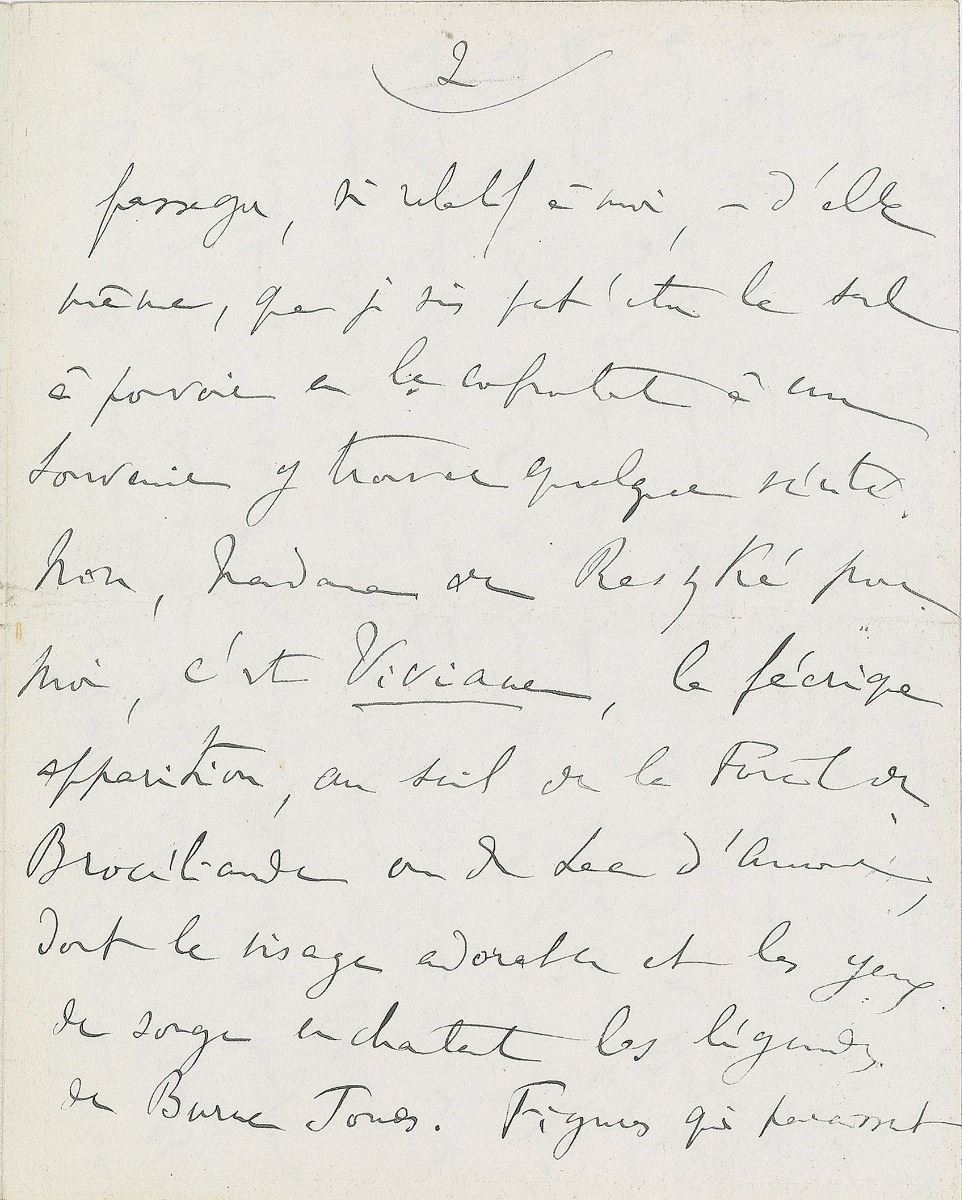 2
passager, si relatif à moi, – d'elle
même, que je suis peut'être le seul
à pouvoir en le confrontant à un
souvenir y trouver quelque vérité.
Non, Madame de Reszké pour
moi, c'est Viviane, la féerique
apparition, au seuil de la Forêt de
Brocéliande ou du Lac d'Amour,
dont le visage adorable et les yeux
de songe enchantent les légendes
de Burne Jones. Figures qui paraissent